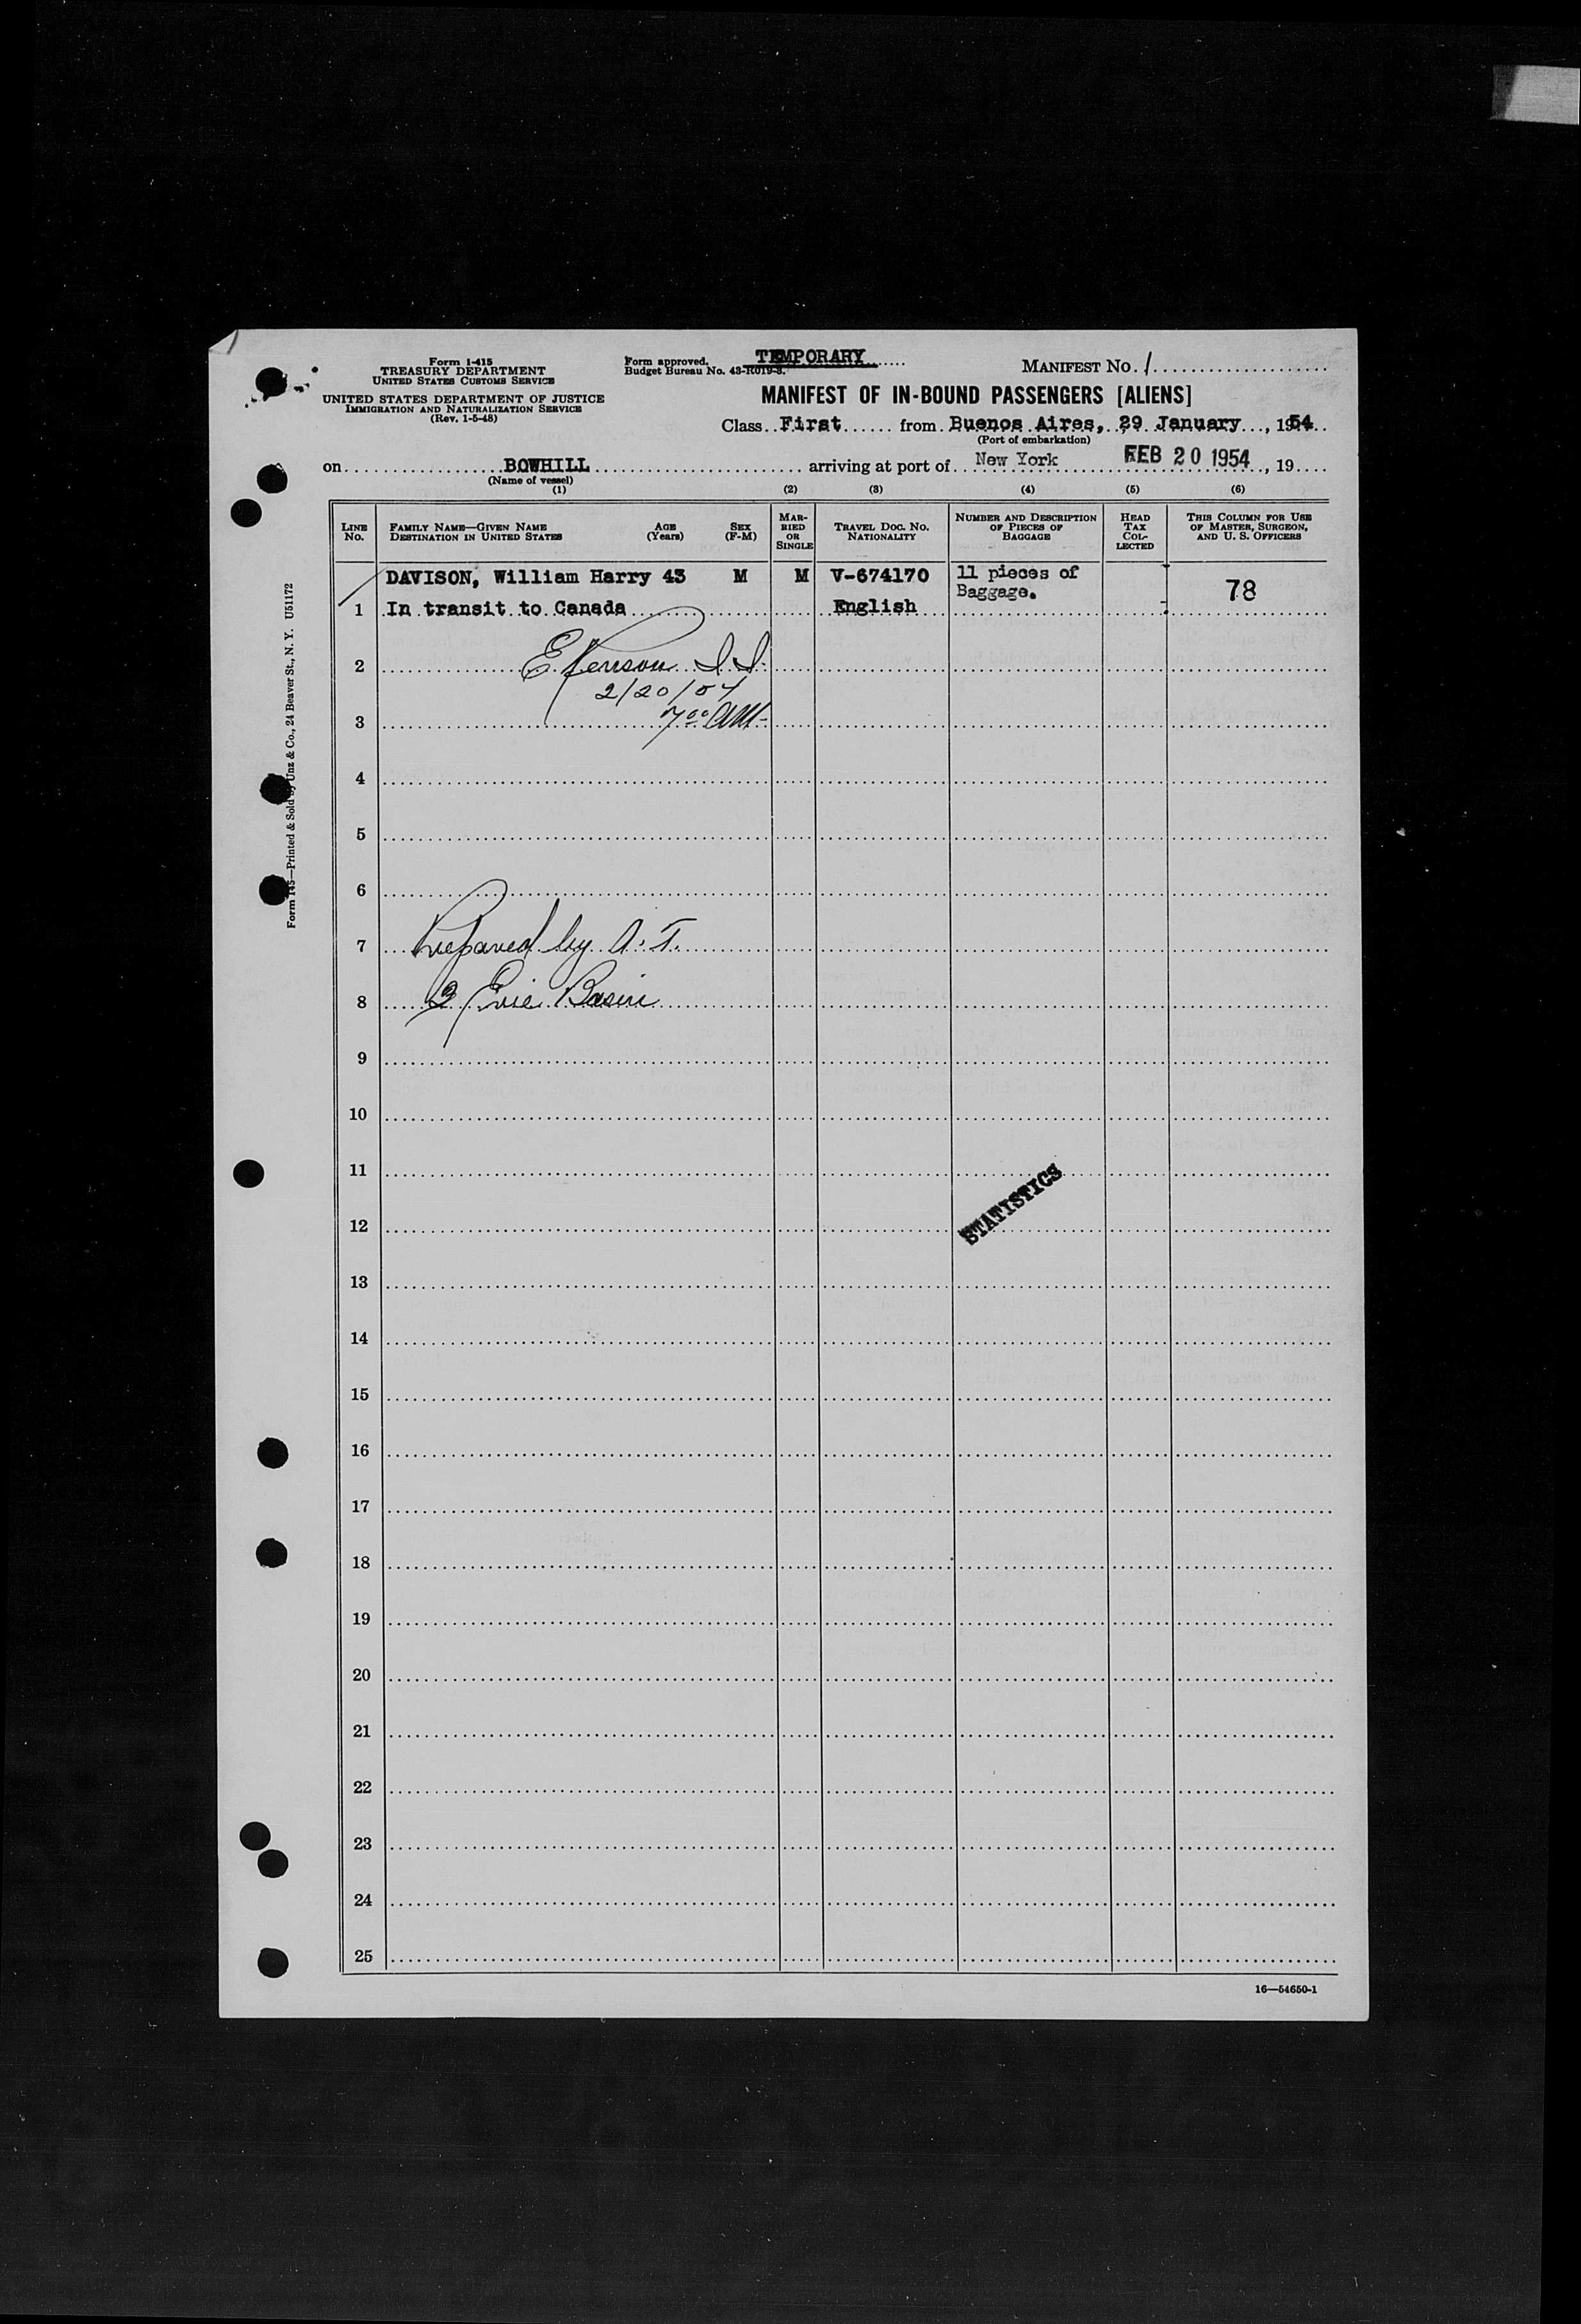 Form I-415
TREASURY DEPARTMENT
UNITED STATES CUSTOMS SERVICE
UNITED STATES DEPARTMENT OF JUSTICE
IMMIGRATION AND NATURALIZATION SERVICE
(Rev. 1-5-48)
Form approved.
Budget Bureau No. 43-R019-3.
TEMPORARY
MANIFEST NO. 1
MANIFEST OF IN-BOUND PASSENGERS [ALIENS]
Class First from Buenos Aires, 29 January, 1954
(Port of embarkation)
on BOWHILL arriving at port of New York FEB 20 1954, 19
(Name of vessel)
(1) (2) (3) (4) (5) (6)
LINE NO. FAMILY NAME—GIVEN NAME DESTINATION IN UNITED STATES AGE (Years) SEX (F-M) MARRIED OR SINGLE TRAVEL DOC. NO. NATIONALITY NUMBER AND DESCRIPTION OF PIECES OF BAGGAGE HEAD TAX COLLECTED THIS COLUMN FOR USE OF MASTER, SURGEON, AND U. S. OFFICERS
DAVISON, William Harry 43 M M V-674170 11 pieces of Baggage. 78
1 In transit to Canada English
2 E. I.I.
2/20/54
3 7:00 AM
4
5
6
7 Prepared by A. T.
8 3 Erie Basin
9
10
11
STATISTICS
12
13
14
15
16
17
18
19
20
21
22
23
24
25
16—54650-1
Form 145—Printed & Sold by Unz & Co., 24 Beaver St., N. Y. U51172